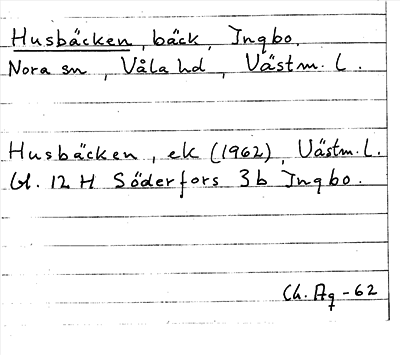 Husbäcken, bäck, Ingbo.
Nora sn, Våla hd, Västm. l.
Husbäcken, ek (1962), Västm. l.
bl. 12 H Söderfors 3b Ingbo.
Ch. Ag -62